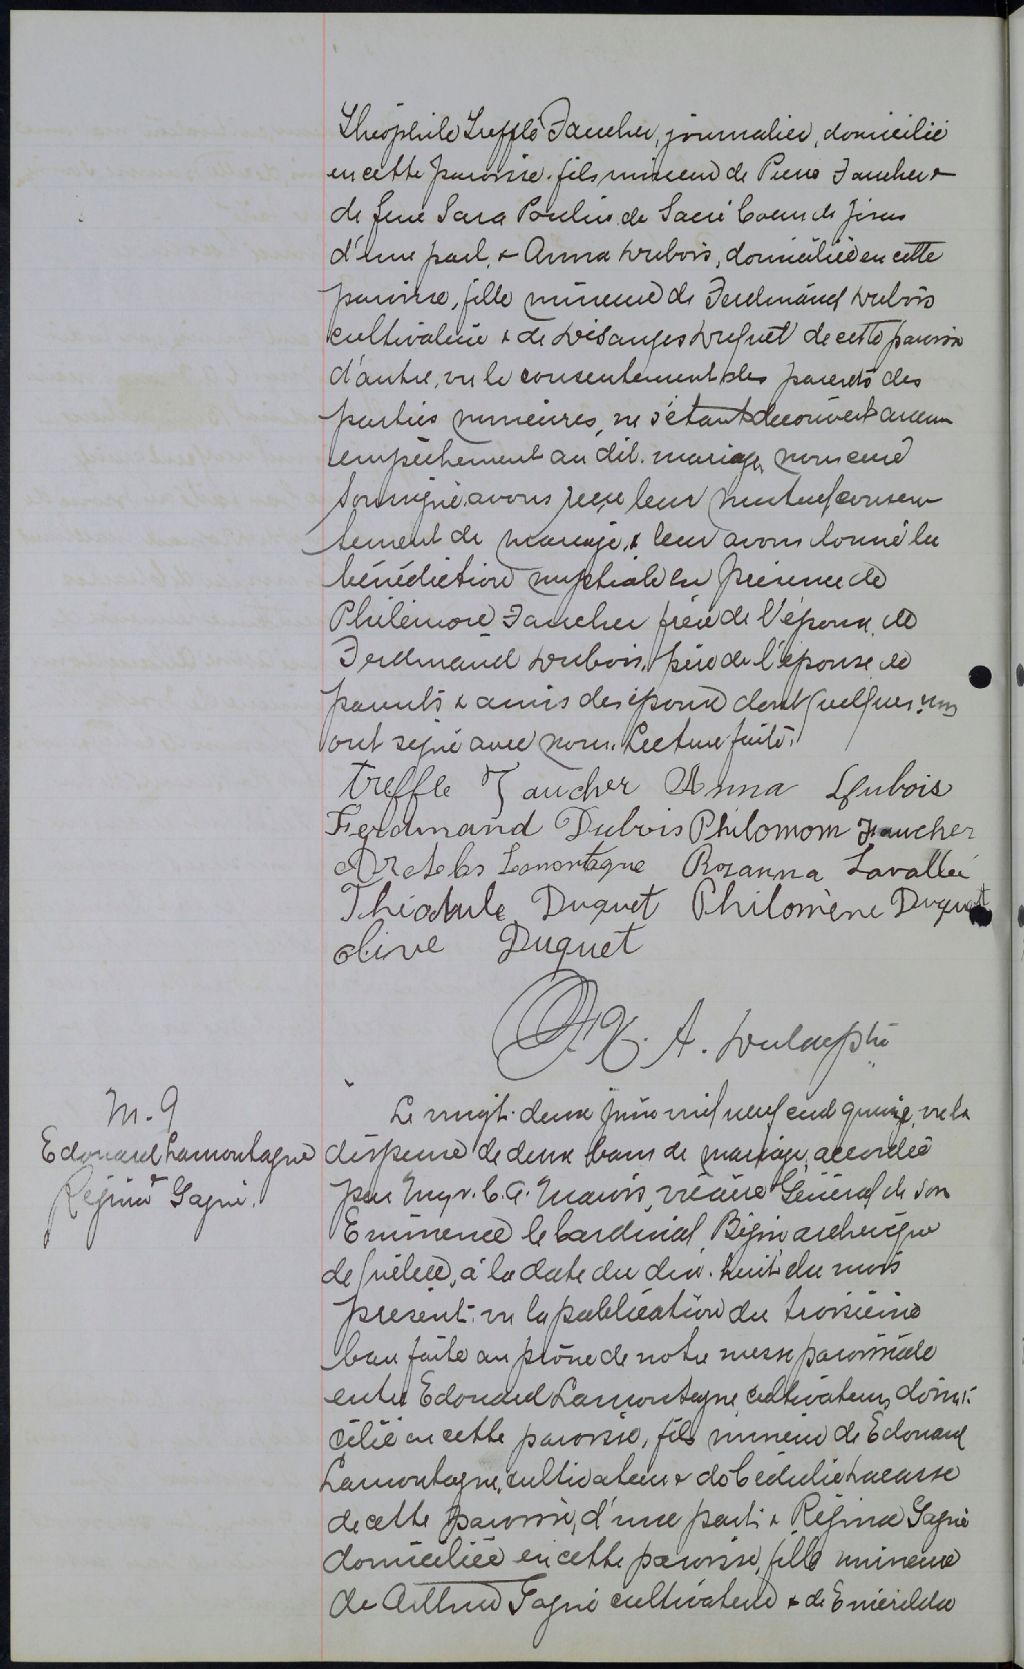 Théophile Trefflé Faucher, journalier, domicilié
en cette paroisse, fils mineur de Pierre Faucher &
de feue Sara Poulin de Sacré Coeur de Jésus
d'une part, & Anna Dubois, domiciliée en cette
paroisse, fille mineure de Ferdinand Dubois
cultivateur & de Désanges Duquet de cette paroisse
d'autre, vu le consentement des parents des
parties mineures, ne s'étant découvert aucun
empêchement au dit mariage, nous curé
soussigné avons reçu leur mutuel consen
tement de mariage, & leur avons donné la
bénédiction nuptiale en présence de
Philémon Faucher frère de l'époux, de
Ferdinand Dubois, père de l'épouse de
parents & amis des époux dont quelques uns
ont signé avec nous. Lecture faite.
Treffle Faucher Anna Dubois
Ferdinand Dubois Philomom Faucher
Lamontagne Rosanna Lavallée
Théodule Duquet Philomène Duquet
Olive Duquet
A. Ptre
M. 9
Edouard Lamontagne
&
Régina Gagné.
Le vingt-deux juin mil neuf cent quinze, vu la
dispense de deux bans de mariage, accordée
par Mgr. C. A. Marois, vicaire Général de Son
Eminence le Cardinal Bégin archevêque
de Québec, à la date du dix-huit du mois
présent: vu la publication du troisième
ban faite au prône de notre messe paroissiale
entre Edouard Lamontagne, cultivateur, domi-
cilié en cette paroisse, fils mineur de Edouard
Lamontagne, cultivateur & de Cédulie Lacasse
de cette paroisse, d'une part & Régina Gagné
domiciliée en cette paroisse, fille mineure
de Arthur Gagné cultivateur & de Emérilda